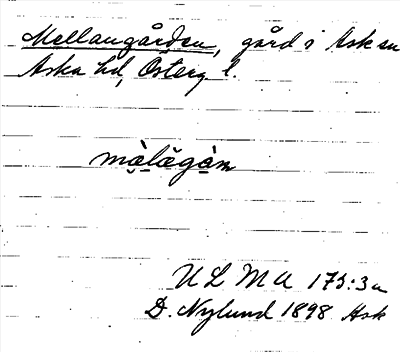 Mellangården, gård i Ask sn
Aska hd, Österg l.
mḁ̀lägàṇ
U L M A 173:3a
D. Nylund 1898 Ask